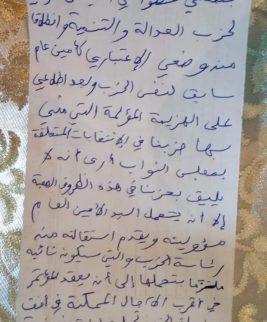 لحزب العدالة والتنمية وانطلاقا
من وضعي الاعتباري كأمين عام
سابق لنفس الحزب وبعد اطلاعي
على الهزيمة المؤلمة التي مني
بها حزبنا في الانتخابات المتعلقة
بمجلس النواب أرى أنه لا
يليق بحزبنا في هذه الظروف الصعبة
إلا أن يتحمل السيد الأمين العام
مسؤوليته ويقدم استقالته من
رئاسة الحزب والتي سيكون نائبه
ملزما بتحملها إلى أن يعقد المؤتمر
في أقرب الآجال الممكنة في أفق